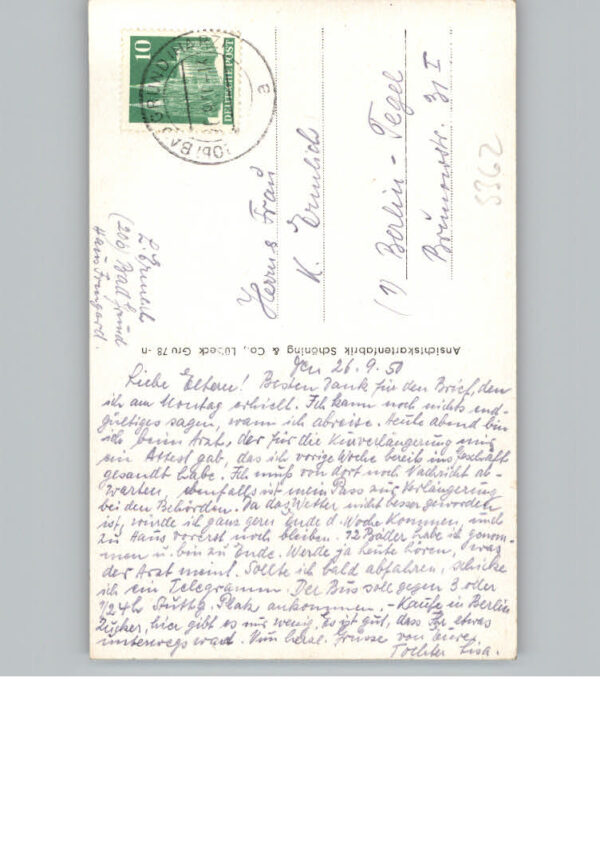 10
DEUTSCHE POST
BAD GRUND (HARZ)
a
Herrn & Frau
K. Ermlich
(1) Berlin - Tegel
Brunowstr. 31 I
3362
L. Ermlich
(20b) Bad Grund
Haus Irmgard.
Ansichtskartenfabrik Schöning & Co., Lübeck Gru 78 -n
Den 26.9.50
Liebe Eltern! Besten Dank für den Brief, den
ich am Montag erhielt. Ich kann noch nichts end-
gültiges sagen, wann ich abreise. Heute abend bin
ich beim Arzt, der für die Kurverlängerung mir
ein Attest gab, das ich vorige Woche bereits ins Geschäft
gesandt habe. Ich muß von dort noch Nachricht ab-
warten, ebenfalls ist mein Pass zur Verlängerung
bei den Behörden. Da das Wetter nicht besser geworden
ist, würde ich ganz gern Ende d. Woche kommen, und
zu Haus vorerst noch bleiben. 12 Bäder habe ich genom-
men u. bin zu Ende. Werde ja heute hören, was
der Arzt meint. Sollte ich bald abfahren, schicke
ich ein Telegramm. Der Bus soll gegen 3 oder
1/2 4 h Stuttg. Platz ankommen. - Kaufe in Berlin
Zucker, hier gibt es nur wenig. Es ist gut, dass Ihr etwas
unterwegs ward. Nun herzl. Grüsse von Eurer
Tochter Lisa.